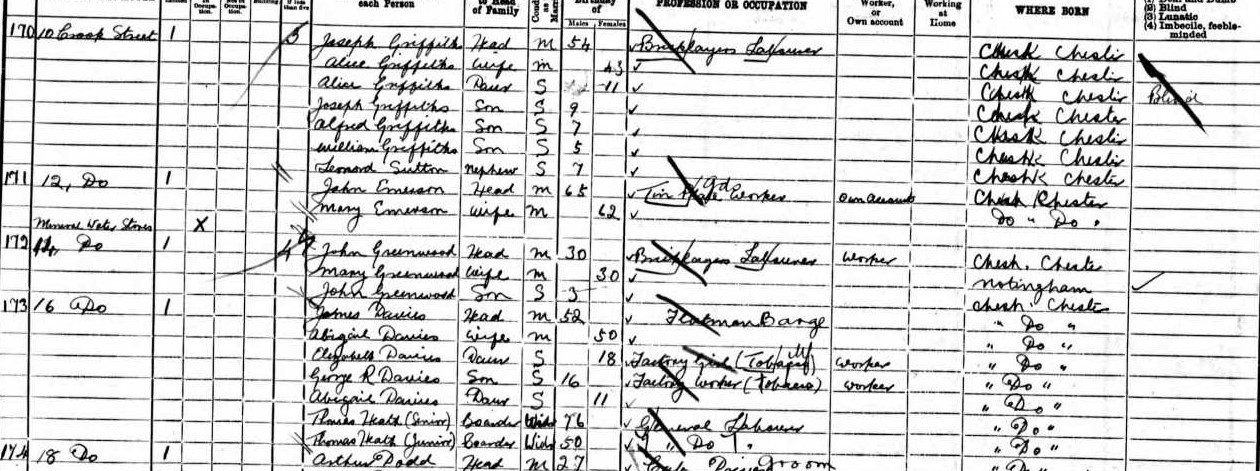 each Person of Family Males Females PROFESSION OR OCCUPATION Worker, or Own account Working at Home WHERE BORN (2) Blind (3) Lunatic (4) Imbecile, feeble-minded
170 10 Crook Street 1 5 Joseph Griffiths Head M 54 Bricklayers Labourer Chesh Chester
Alice Griffiths Wife M 43 Chesh Chester
Alice Griffiths Daur S 11 Chesh Chester Blind
Joseph Griffiths Son S 9 Chesh Chester
Alfred Griffiths Son S 7 Chesh Chester
William Griffiths Son S 5 Chesh Chester
Leonard Sutton Nephew S 7 Chesh Chester
171 12, Do 1 John Emerson Head M 65 Tin Plate Worker Own account Chesh Chester
Mary Emerson Wife M 62 Do " Do "
Mineral Water Stores X
172 14, Do 1 4 John Greenwood Head M 30 Bricklayers Labourer Worker Chesh. Chester
Mary Greenwood Wife M 30 Notingham
John Greenwood Son S 3 Chesh. Chester
173 16 Do 1 James Davies Head M 52 Flatman Barge " Do "
Abigail Davies Wife M 50 " Do "
Elizabeth Davies Daur S 18 Factory Girl (Tobacco) Worker " Do "
George R Davies Son S 16 Factory Worker (Tobacco) Worker " Do "
Abigail Davies Daur S 11 " Do "
Thomas Heath (Senior) Boarder Widr 76 General Labourer " Do "
Thomas Heath (Junior) Boarder Widr 50 " Do " " Do "
174 18 Do 1 Arthur Dodd Head M 27 Groom " Do "